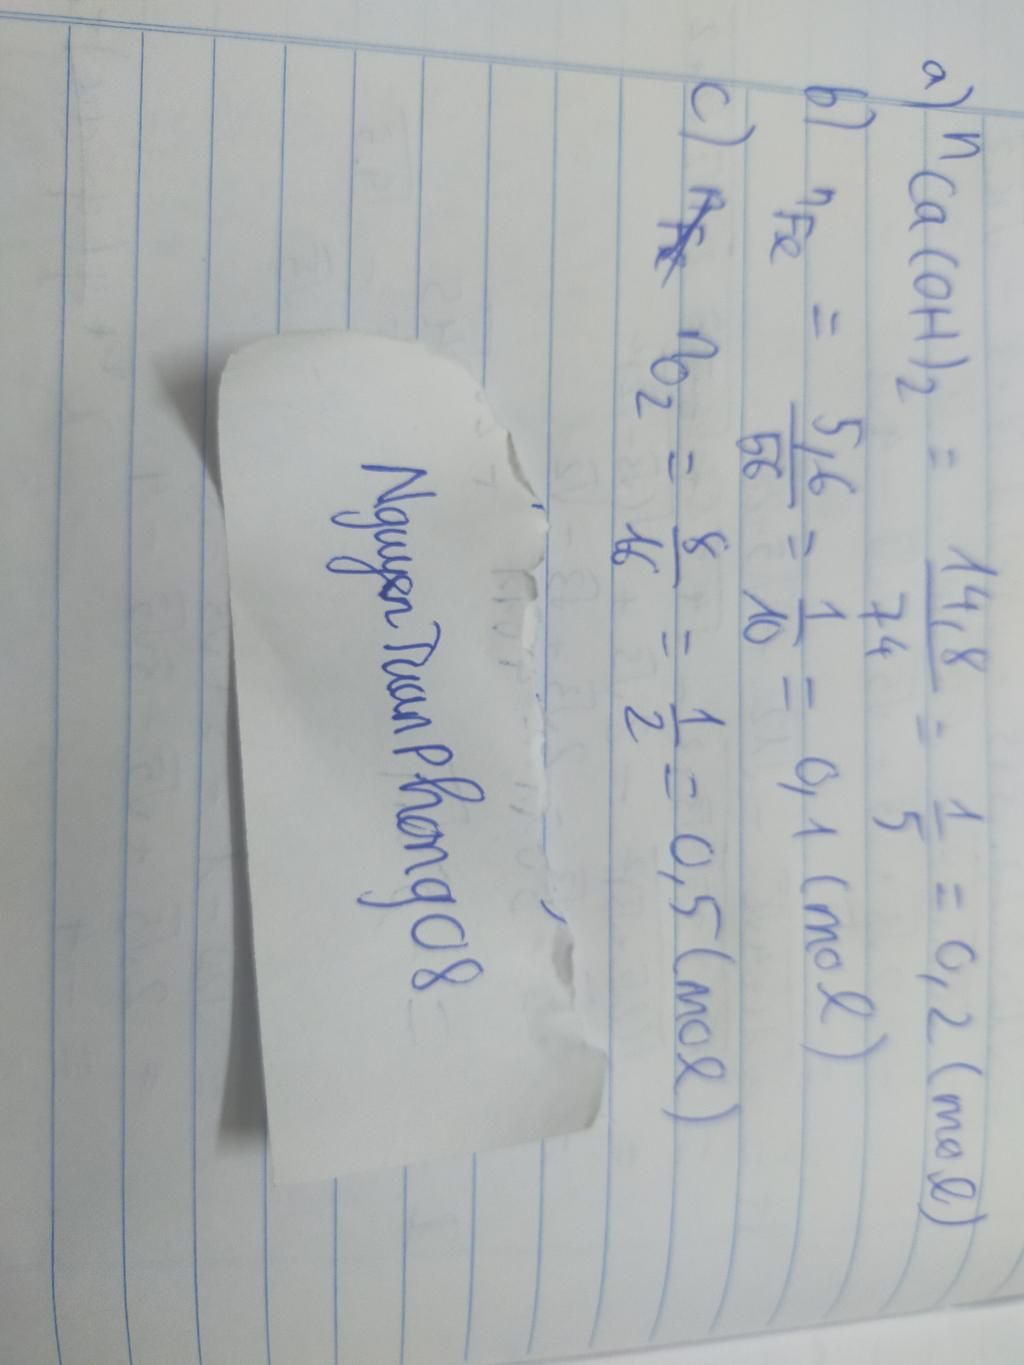 a) nCa(OH)₂ = 14,8/74 = 1/5 = 0,2 (mol)
b) nFe = 5,6/56 = 1/10 = 0,1 (mol)
c) nFe nO₂ = 8/16 = 1/2 = 0,5 (mol)
NguyenTuanPhong08